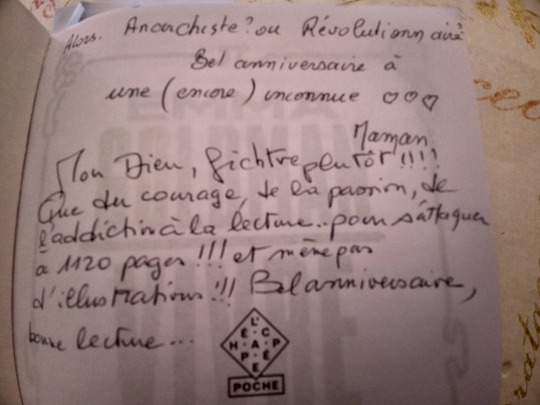 Alors. Anarchiste? ou Révolutionnaire
Bel anniversaire à
une (encore) inconnue ♡♡♡
Maman
Mon Dieu, fichtre plutôt !!!!
Que du courage, de la passion, de
l'addiction à la lecture.. pour s'attaquer
à 1120 pages !!! et même pas
d'illustrations !!! Bel anniversaire,
bonne lecture...
L'ÉCHAPPÉE
POCHE